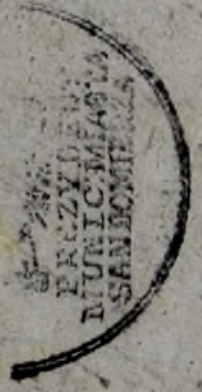 PREZYDENT
MUNIC: MIASTA
SANDOMIERZA